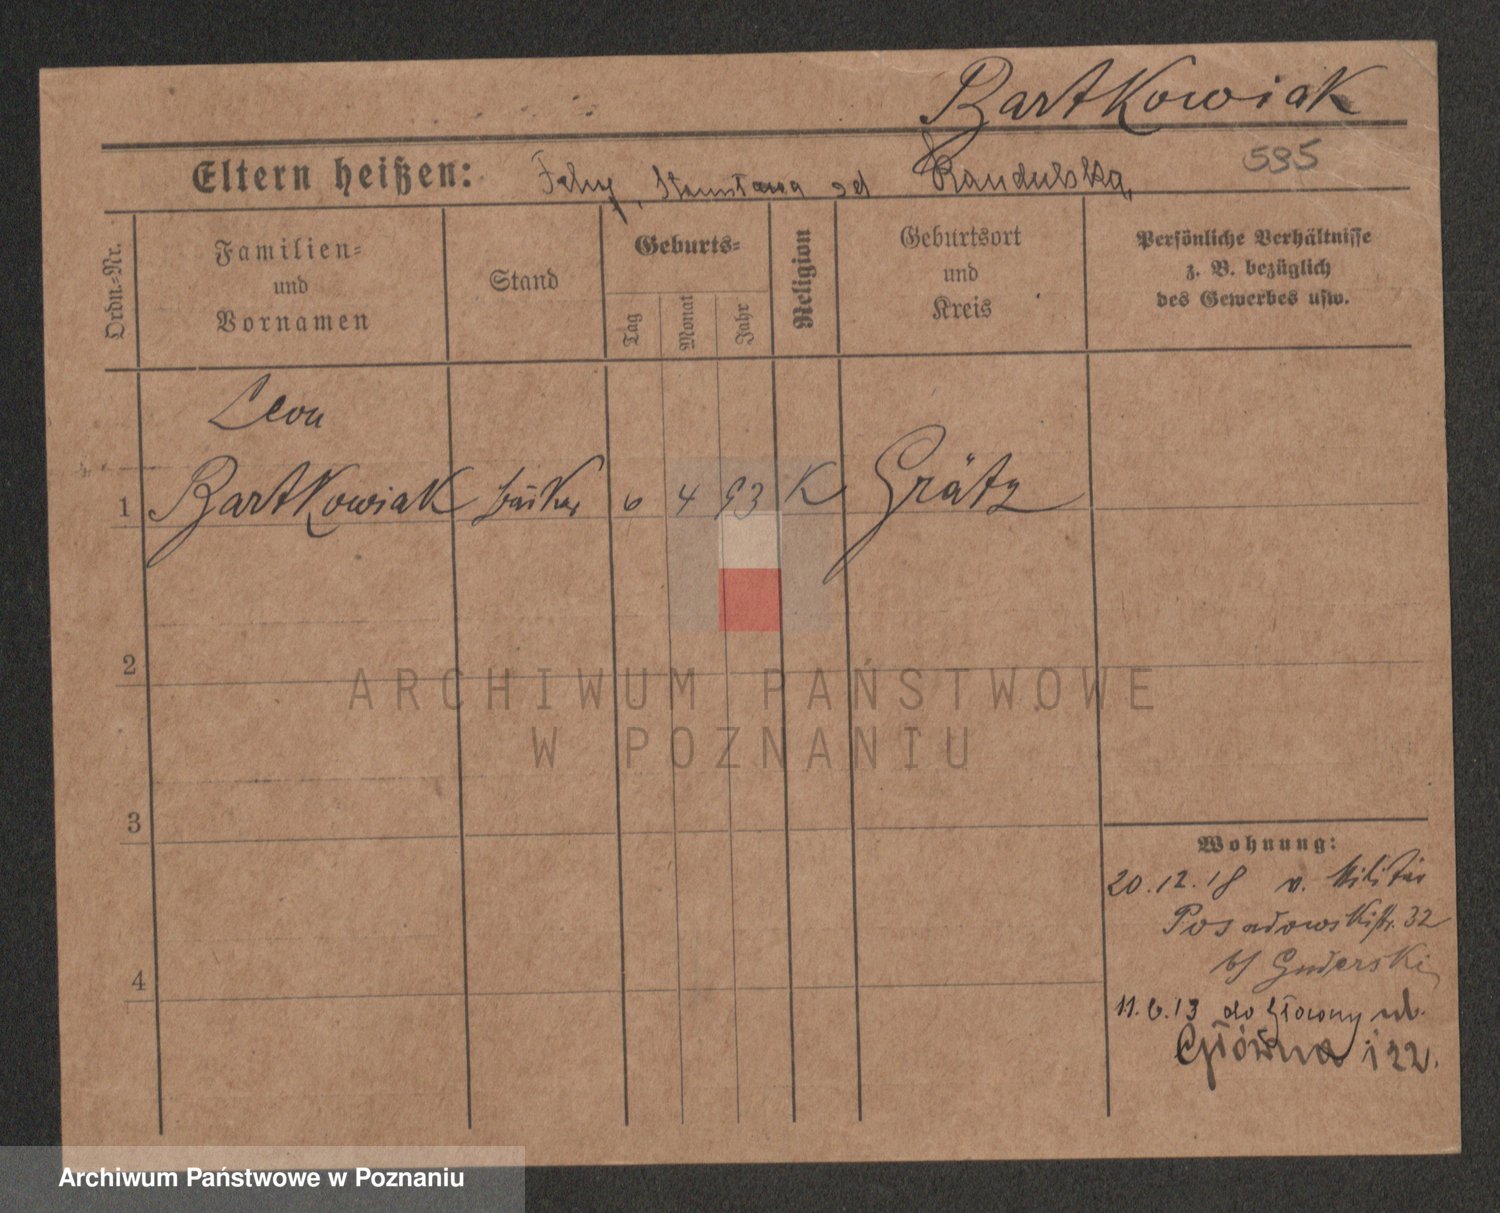 Bartkowiak
595
Eltern heißen: Stanisława Randulska
Ordn.-Nr.
Familien-
und
Vornamen
Stand
Geburts-
Tag
Monat
Jahr
Religion
Geburtsort
und
Kreis
Persönliche Verhältnisse
z. B. bezüglich
des Gewerbes usw.
Leon
1 Bartkowiak Bäcker 6 4 93 K Grätz
2
3
4
ARCHIWUM PAŃSTWOWE
W POZNANIU
Wohnung:
20.12.18 v. Militär
Posadowskistr. 32
b/ Guderski
11.6.13 do Głowny ul.
Główna 122.
Archiwum Państwowe w Poznaniu